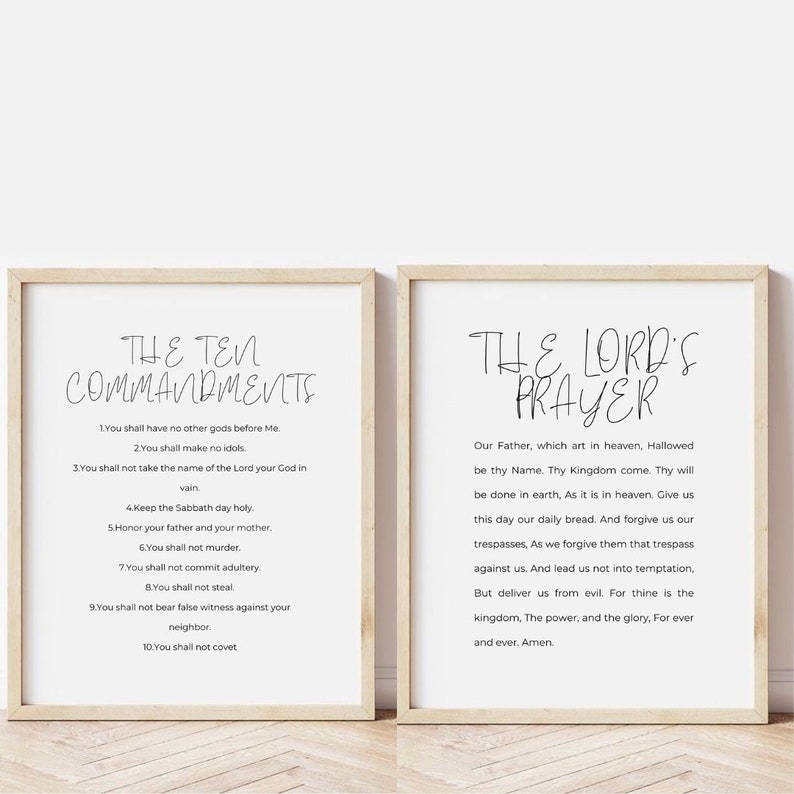 THE TEN
COMMANDMENTS
1.You shall have no other gods before Me.
2.You shall make no idols.
3.You shall not take the name of the Lord your God in
vain.
4.Keep the Sabbath day holy.
5.Honor your father and your mother.
6.You shall not murder.
7.You shall not commit adultery.
8.You shall not steal.
9.You shall not bear false witness against your
neighbor.
10.You shall not covet
THE LORD'S
PRAYER
Our Father, which art in heaven, Hallowed
be thy Name. Thy Kingdom come. Thy will
be done in earth, As it is in heaven. Give us
this day our daily bread. And forgive us our
trespasses, As we forgive them that trespass
against us. And lead us not into temptation,
But deliver us from evil. For thine is the
kingdom, The power, and the glory, For ever
and ever. Amen.